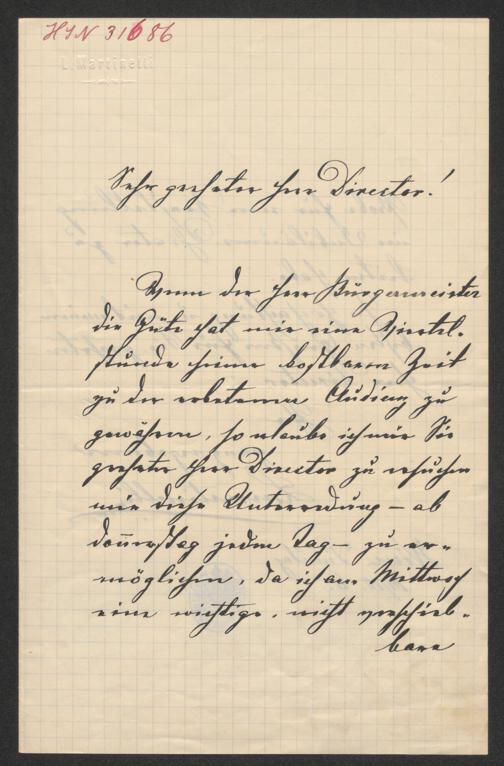 HIN 31686
L. Martinelli
Sehr geehrter Herr Director!
Wenn der Herr Bürgermeister
die Güte hat mir eine Viertel-
stunde seiner kostbaren Zeit
zu der erbetenen Audienz zu
gewähren, so erlaube ich mir Sie
geehrter Herr Director zu ersuchen
mir diese Unterredung – ab
Donnerstag jeden Tag – zu er-
möglichen, da ich am Mittwoch
eine wichtige, nicht verschieb-
bare